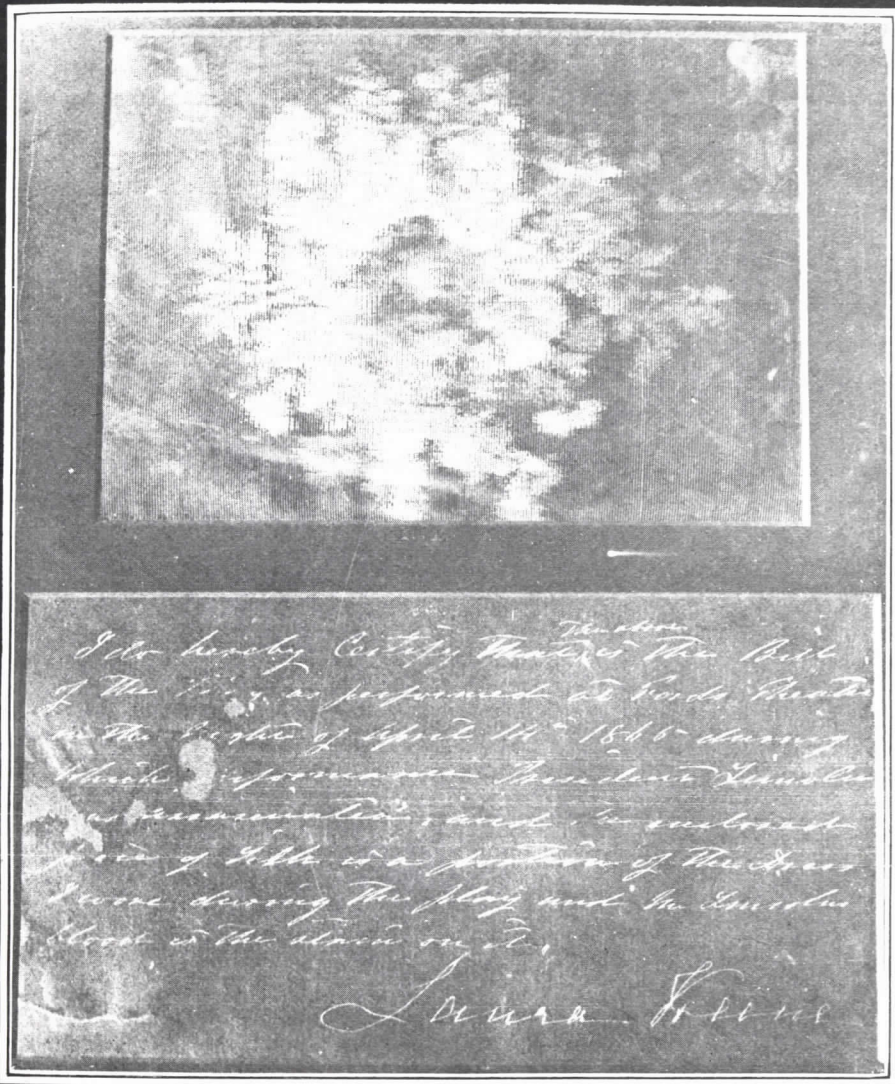 the above
I do hereby Certify that is the Bill
of the Play, as performed at Fords Theatre
on the night of April 14th 1865 during
which performance President Lincoln
was assassinated, and the enclosed
piece of silk is a portion of the dress
I wore during the play and Mr Lincolns
blood is the stain on it.
Laura Keene